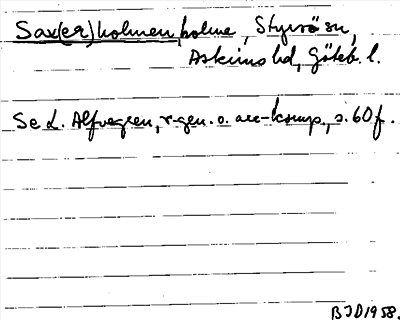 Sax(er)holmen, holme, Styrsö sn,
Askims hd, Göteb. l.
Se L. Alfvegren, r-gen. o. acc-komp., s. 60 f.
BJD 1958.